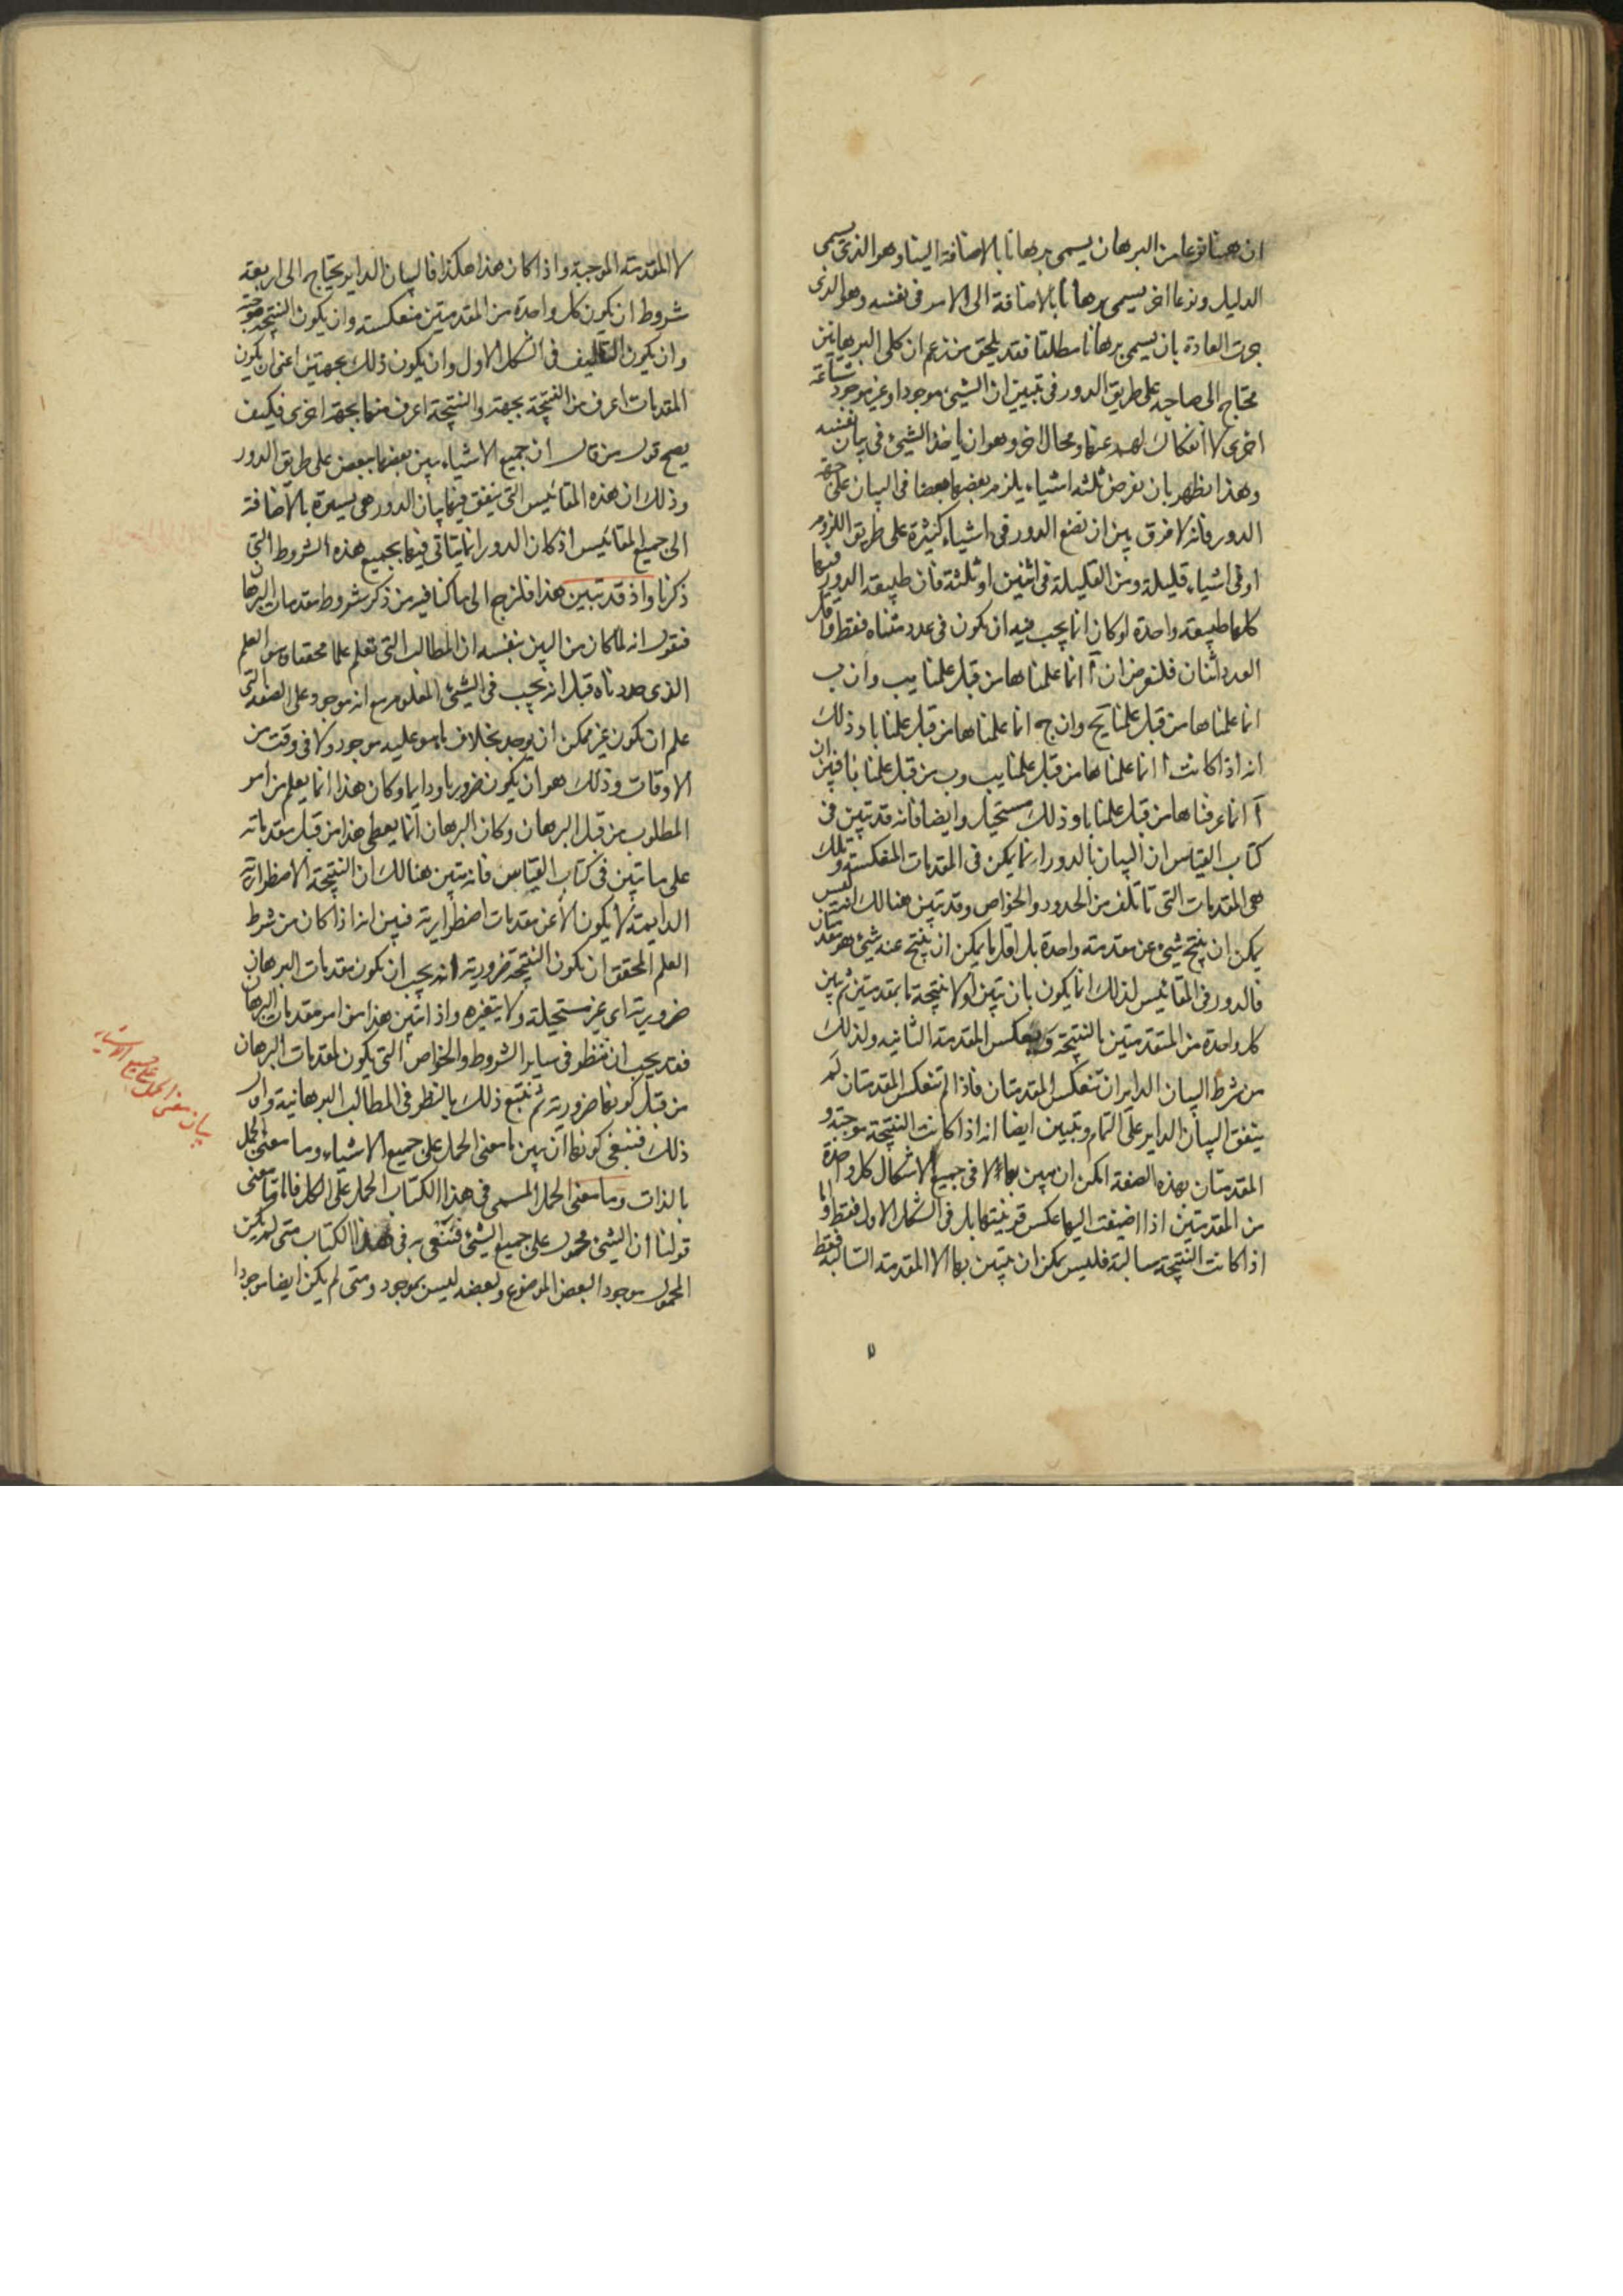 ان ههنا نوعا من البرهان يسمى برهانا بالاضافة الينا وهو الذى يسمى
الدليل ونوعا اخر يسمى برهانا بالاضافة الى الامر فى نفسه وهو الذى
جرت العادة بان يسمى برهانا مطلقا فقد يلحق من زعم ان كلى البرهانين
محتاج الى صاحبه على طريق الدور فى تبيين ان الشيئ موجودا وغير موجود شناعة
اخرى لا انفكاك لهم عنها ومحال اخر وهو ان ياخذ الشيئ فى بيان نفسه
وهذا يظهر بان نفرض ثلثة اشياء يلزم بعضها بعضا فى البيان على جهة
الدور فانه لا فرق بين ان نضع الدور فى اشياء كثيرة على طريق اللزوم
او فى اشياء قليلة ومن القليلة فى اثنين او ثلثة فان طبيعة الدور فيها
كلها طبيعة واحدة لو كان انما يجب فيه ان يكون فى عدد متناه فقط واقل
العدد اثنان فلنفرض ان آ انما علمناها من قبل علمنا بب وان ب
انما علمناها من قبل علمنا بج وان ج انما علمناها من قبل علمنا با وذلك
انه اذا كانت ا انما علمناها من قبل علمنا بب وب من قبل علمنا با فبين ان
آ انما عرفناها من قبل علمنا با وذلك مستحيل وايضا فانه قد تبين فى
كتاب القياس ان البيان بالدور انما يمكن فى المقدمات المنعكسة وتلك
هى المقدمات التى تاتلف من الحدود والخواص وقد تبين هنالك انه ليس
يمكن ان ينتج شيئ عن مقدمة واحدة بل اقل ما يمكن ان ينتج عنه شيئ هو مقدمتان
فالدور فى المقائيس لذلك انما يكون بان تبين اولا نتيجة ما بمقدمتين ثم تبين
كل واحدة من المتقدمتين بالنتيجة وبعكس المقدمة الثانيه ولذلك
من شرط البيان الداير ان تنعكس المقدمتان فاذا لم تنعكس المقدمتان لم
يتفق البيان الداير على التمام وتبين ايضا انه اذا كانت النتيجة موجبة و
المقدمتان بهذه الصفة امكن ان يبين بها لا فى جميع الاشكال كل واحدة
من المقدمتين اذا اضيفت اليها عكس قرينتها بل فى الشكل الاول فقط واما
اذا كانت النتيجة سالبة فليس يمكن ان يتبين بها الا المقدمة السالبة فقط
لا المقدمة الموجبة واذا كان هذا هكذا فالبيان الداير يحتاج الى اربعة
شروط ان يكون كل واحدة من المقدمتين منعكسة وان يكون النتيجة موجبة
وان يكون التاليف فى الشكل الاول وان يكون ذلك بجهتين اعنى ان يكون
المقدمات اعرف من النتيجة بجهة والنتيجة اعرف منها بجهة اخرى فكيف
يصح قول من قال ان جميع الاشياء يبين بعضها ببعض على طريق الدور
وذلك ان هذه المقائيس التى يتفق فيها بيان الدور هى يسيرة بالاضافة
الى جميع المقائيس اذ كان الدور انما يتاتى فيها بجميع هذه الشروط التى
ذكرنا واذ قد تبين هذا فلنرجع الى ما كنا فيه من ذكر شروط مقدمات البرهان
فنقول انه لما كان من البين بنفسه ان المطالب التى تعلم علما محققا هو العلم
الذى حددناه قبل انه يجب فى الشيئ المعلوم مع انه موجود على الصفة التى
علم ان يكون غير ممكن ان يوجد بخلاف ما هو عليه موجود ولا فى وقت من
الاوقات وذلك هو ان يكون ضروريا ودايما وكان هذا انما يعلم من امر
المطلوب من قبل البرهان وكان البرهان انما يعطى هذا من قبل مقدماته
على ما تبين فى كتاب القياس فانه تبين هنالك ان النتيجة الاضطرارية
الدايمة لا يكون الا عن مقدمات اضطرارية فبين انه اذا كان من شرط
العلم المحقق ان تكون النتيجة ضرورية انه يجب ان تكون مقدمات البرهان
ضرورية اى غير مستحيلة ولا يتغيره واذا تبين هذا من امر مقدمات البرهان
فقد يجب ان ننظر فى ساير الشروط والخواص التى يكون لمقدمات البرهان
من قبل كونها ضرورية ثم نتبع ذلك بالنظر فى المطالب البرهانية واول
ذلك فينبغى كونها ان يبين ما معنى الحمل على جميع الاشياء وما معنى الحمل
بالذات وما معنى الحمل المسمى فى هذا الكتاب الحمل على الكل فاما ما معنى
قولنا ان الشيئ محمول على جميع الشيئ فنعنى به فى هذا الكتاب متى لم يكن
المحمول موجودا لبعض الموضوع ولبعضه ليس بموجود ومتى لم يكن ايضا موجودا
بيان معنى الحمل على جميع الاشياء